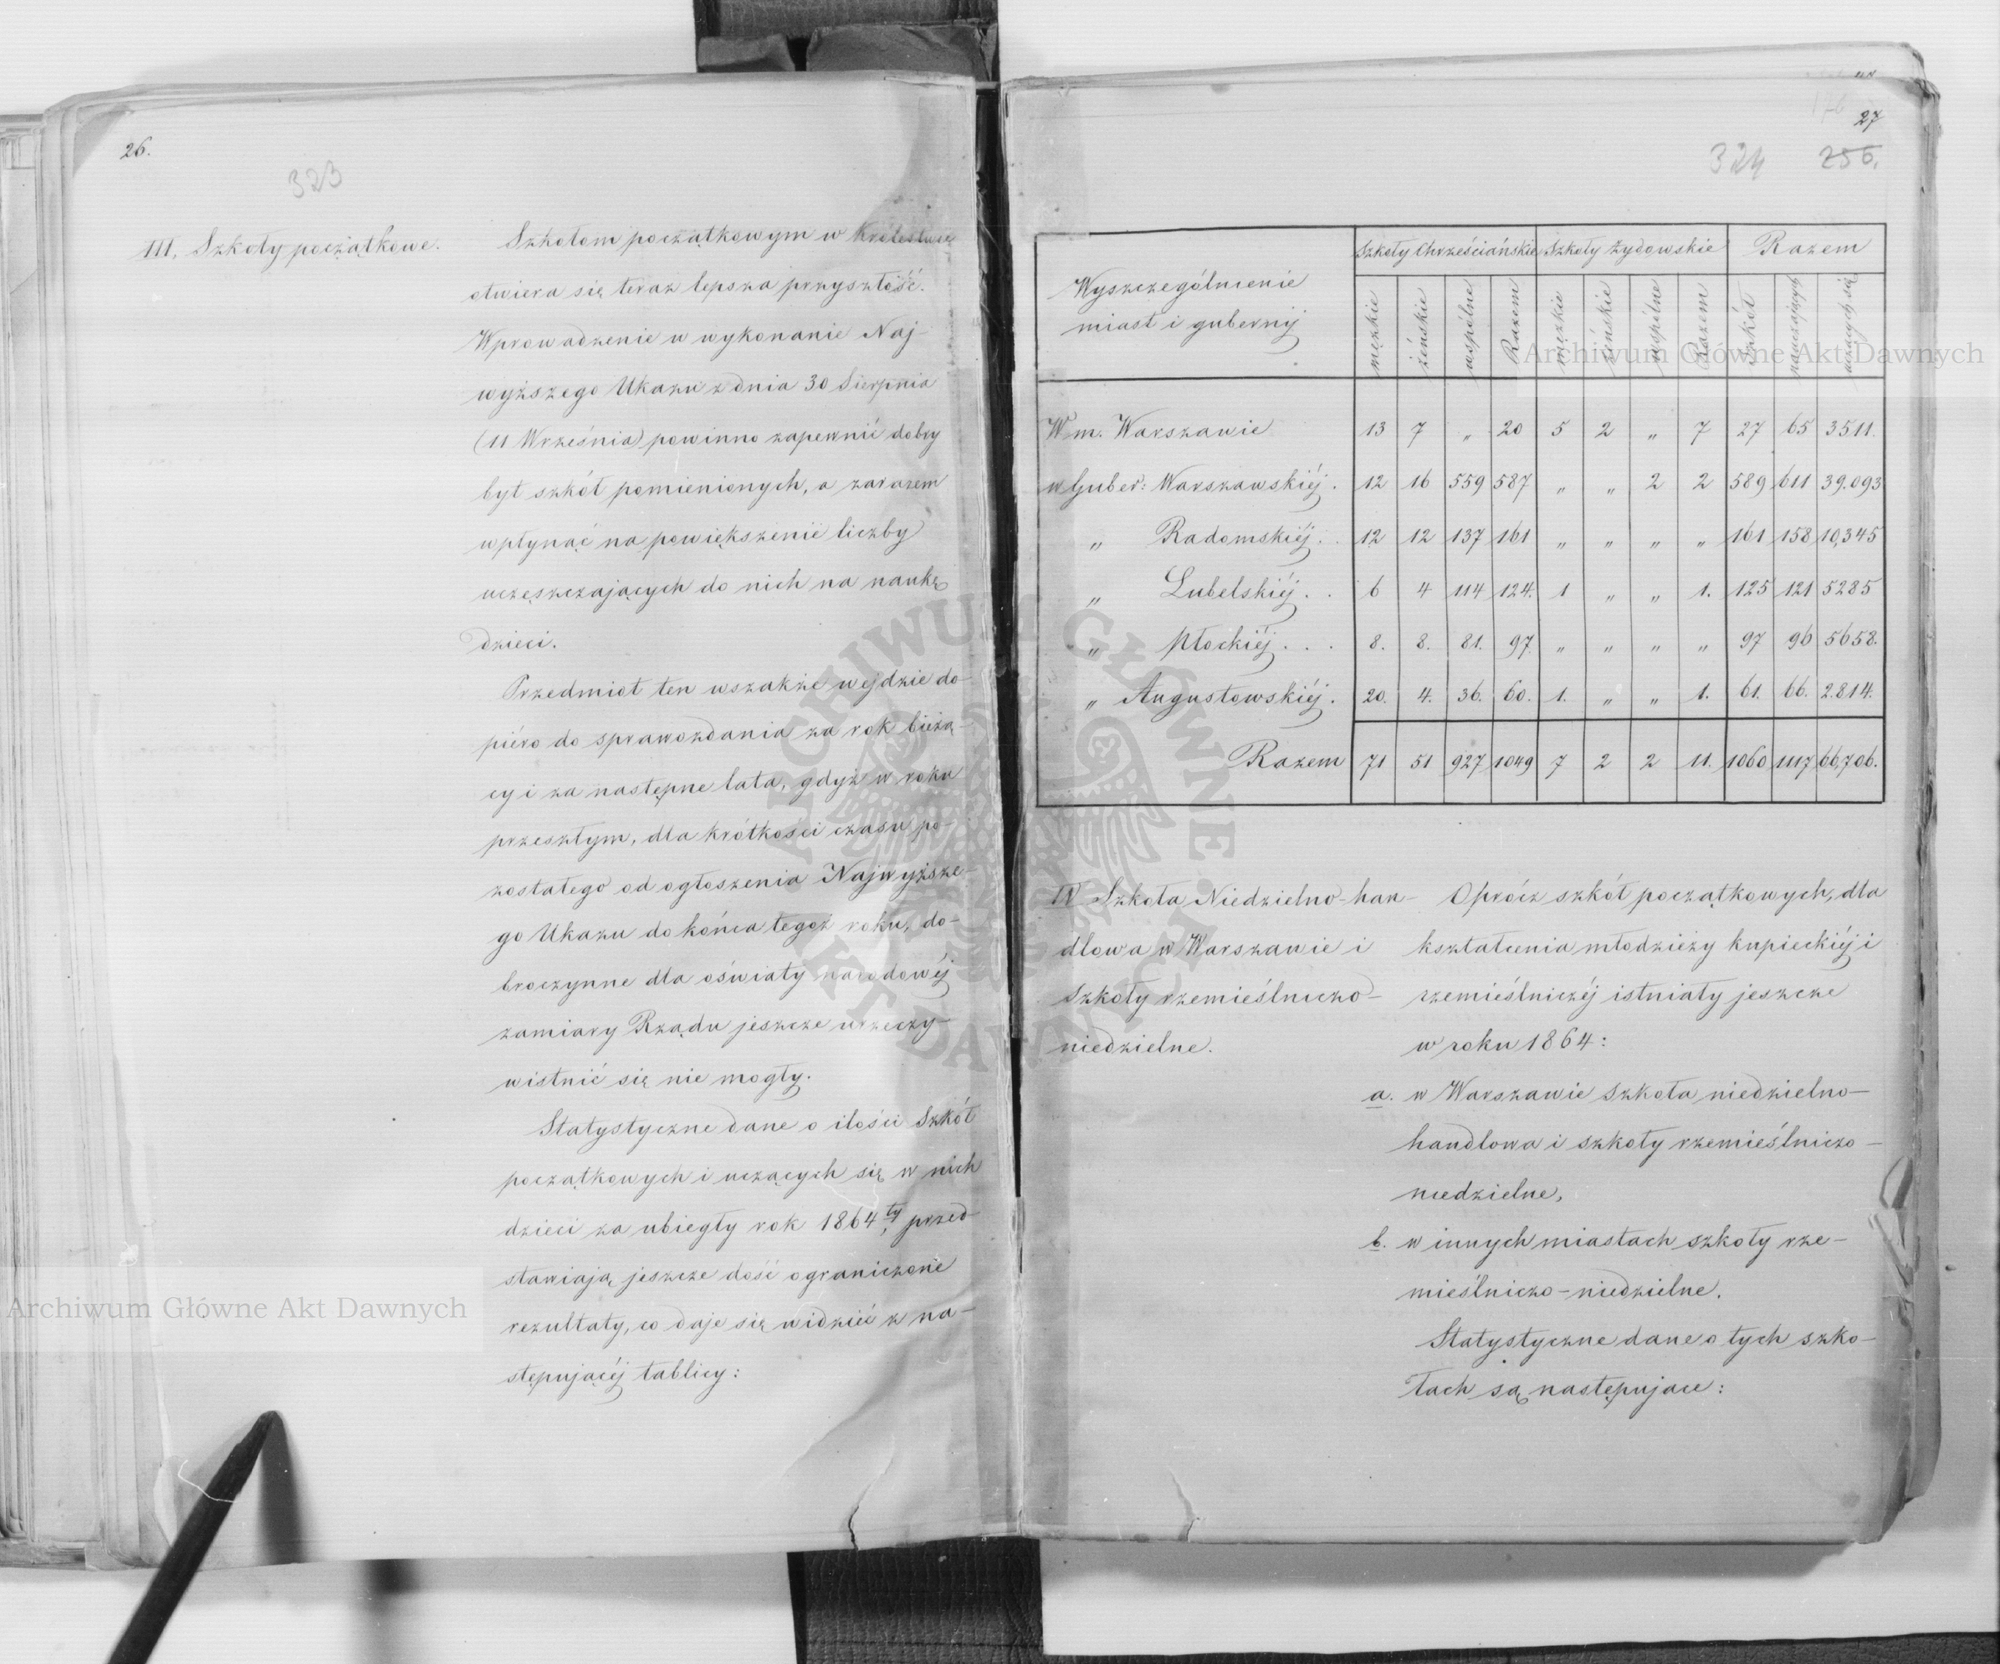 26.
323
III. Szkoły początkowe.
Szkołom początkowym w Królestwie
otwiera się teraz lepsza przyszłość.
Wprowadzenie w wykonanie Naj-
wyższego Ukazu z dnia 30 Sierpnia
(11 Września) powinno zapewnić dobry
byt szkół pomienionych, a zarazem
wpłynąć na powiększenie liczby
uczęszczających do nich na naukę
dzieci.
Przedmiot ten wszakże wejdzie do-
piéro do sprawozdania za rok bieżą-
cy i za następne lata, gdyż w roku
przeszłym, dla krótkości czasu po-
zostałego od ogłoszenia Najwyższe-
go Ukazu do końca tegoż roku, do-
broczynne dla oświaty narodowéj
zamiary Rządu jeszcze urzeczy-
wistnić się nie mogły.
Statystyczne dane o ilości Szkół
początkowych i uczących się w nich
dzieci za ubiegły rok 1864ty, przed-
stawiają jeszcze dość ograniczone
rezultaty, co daje się widzieć z na-
stępującéj tablicy:
27
324 256.
Wyszczególnienie miast i gubernij | Szkoły Chrześciańskie | Szkoły Żydowskie | Razem
męzkie | żeńskie | wspólne | Razem | męzkie | żeńskie | wspólne | Razem | szkół | nauczających | uczących się
W m. Warszawie 13 7 „ 20 5 2 „ 7 27 65 3511.
w Guber: Warszawskiéj. 12 16 559 587 „ „ 2 2 589 611 39.093
„ Radomskiéj . . 12 12 137 161 „ „ „ „ 161 158 10,345
„ Lubelskiéj . . 6 4 114 124. 1 „ „ 1. 125 121 5285
„ Płockiéj . . . 8. 8. 81. 97. „ „ „ „ 97 96 5658.
„ Augustowskiéj. 20. 4. 36. 60. 1. „ „ 1. 61. 66. 2.814.
Razem 71 51 927 1049 7 2 2 11. 1060 1117 66,706.
IV Szkoła Niedzielno-han-
dlowa w Warszawie i
Szkoły rzemieślniczo-
niedzielne.
Oprócz szkół początkowych, dla
kształcenia młodzieży kupieckiéj i
rzemieślniczéj istniały jeszcze
w roku 1864:
a. w Warszawie Szkoła niedzielno-
handlowa i szkoły rzemieślniczo-
niedzielne,
b. w innych miastach szkoły rze-
mieślniczo-niedzielne.
Statystyczne dane o tych szko-
łach są następujace:
Archiwum Główne Akt Dawnych
Archiwum Główne Akt Dawnych
ARCHIWUM GŁÓWNE AKT DAWNYCH